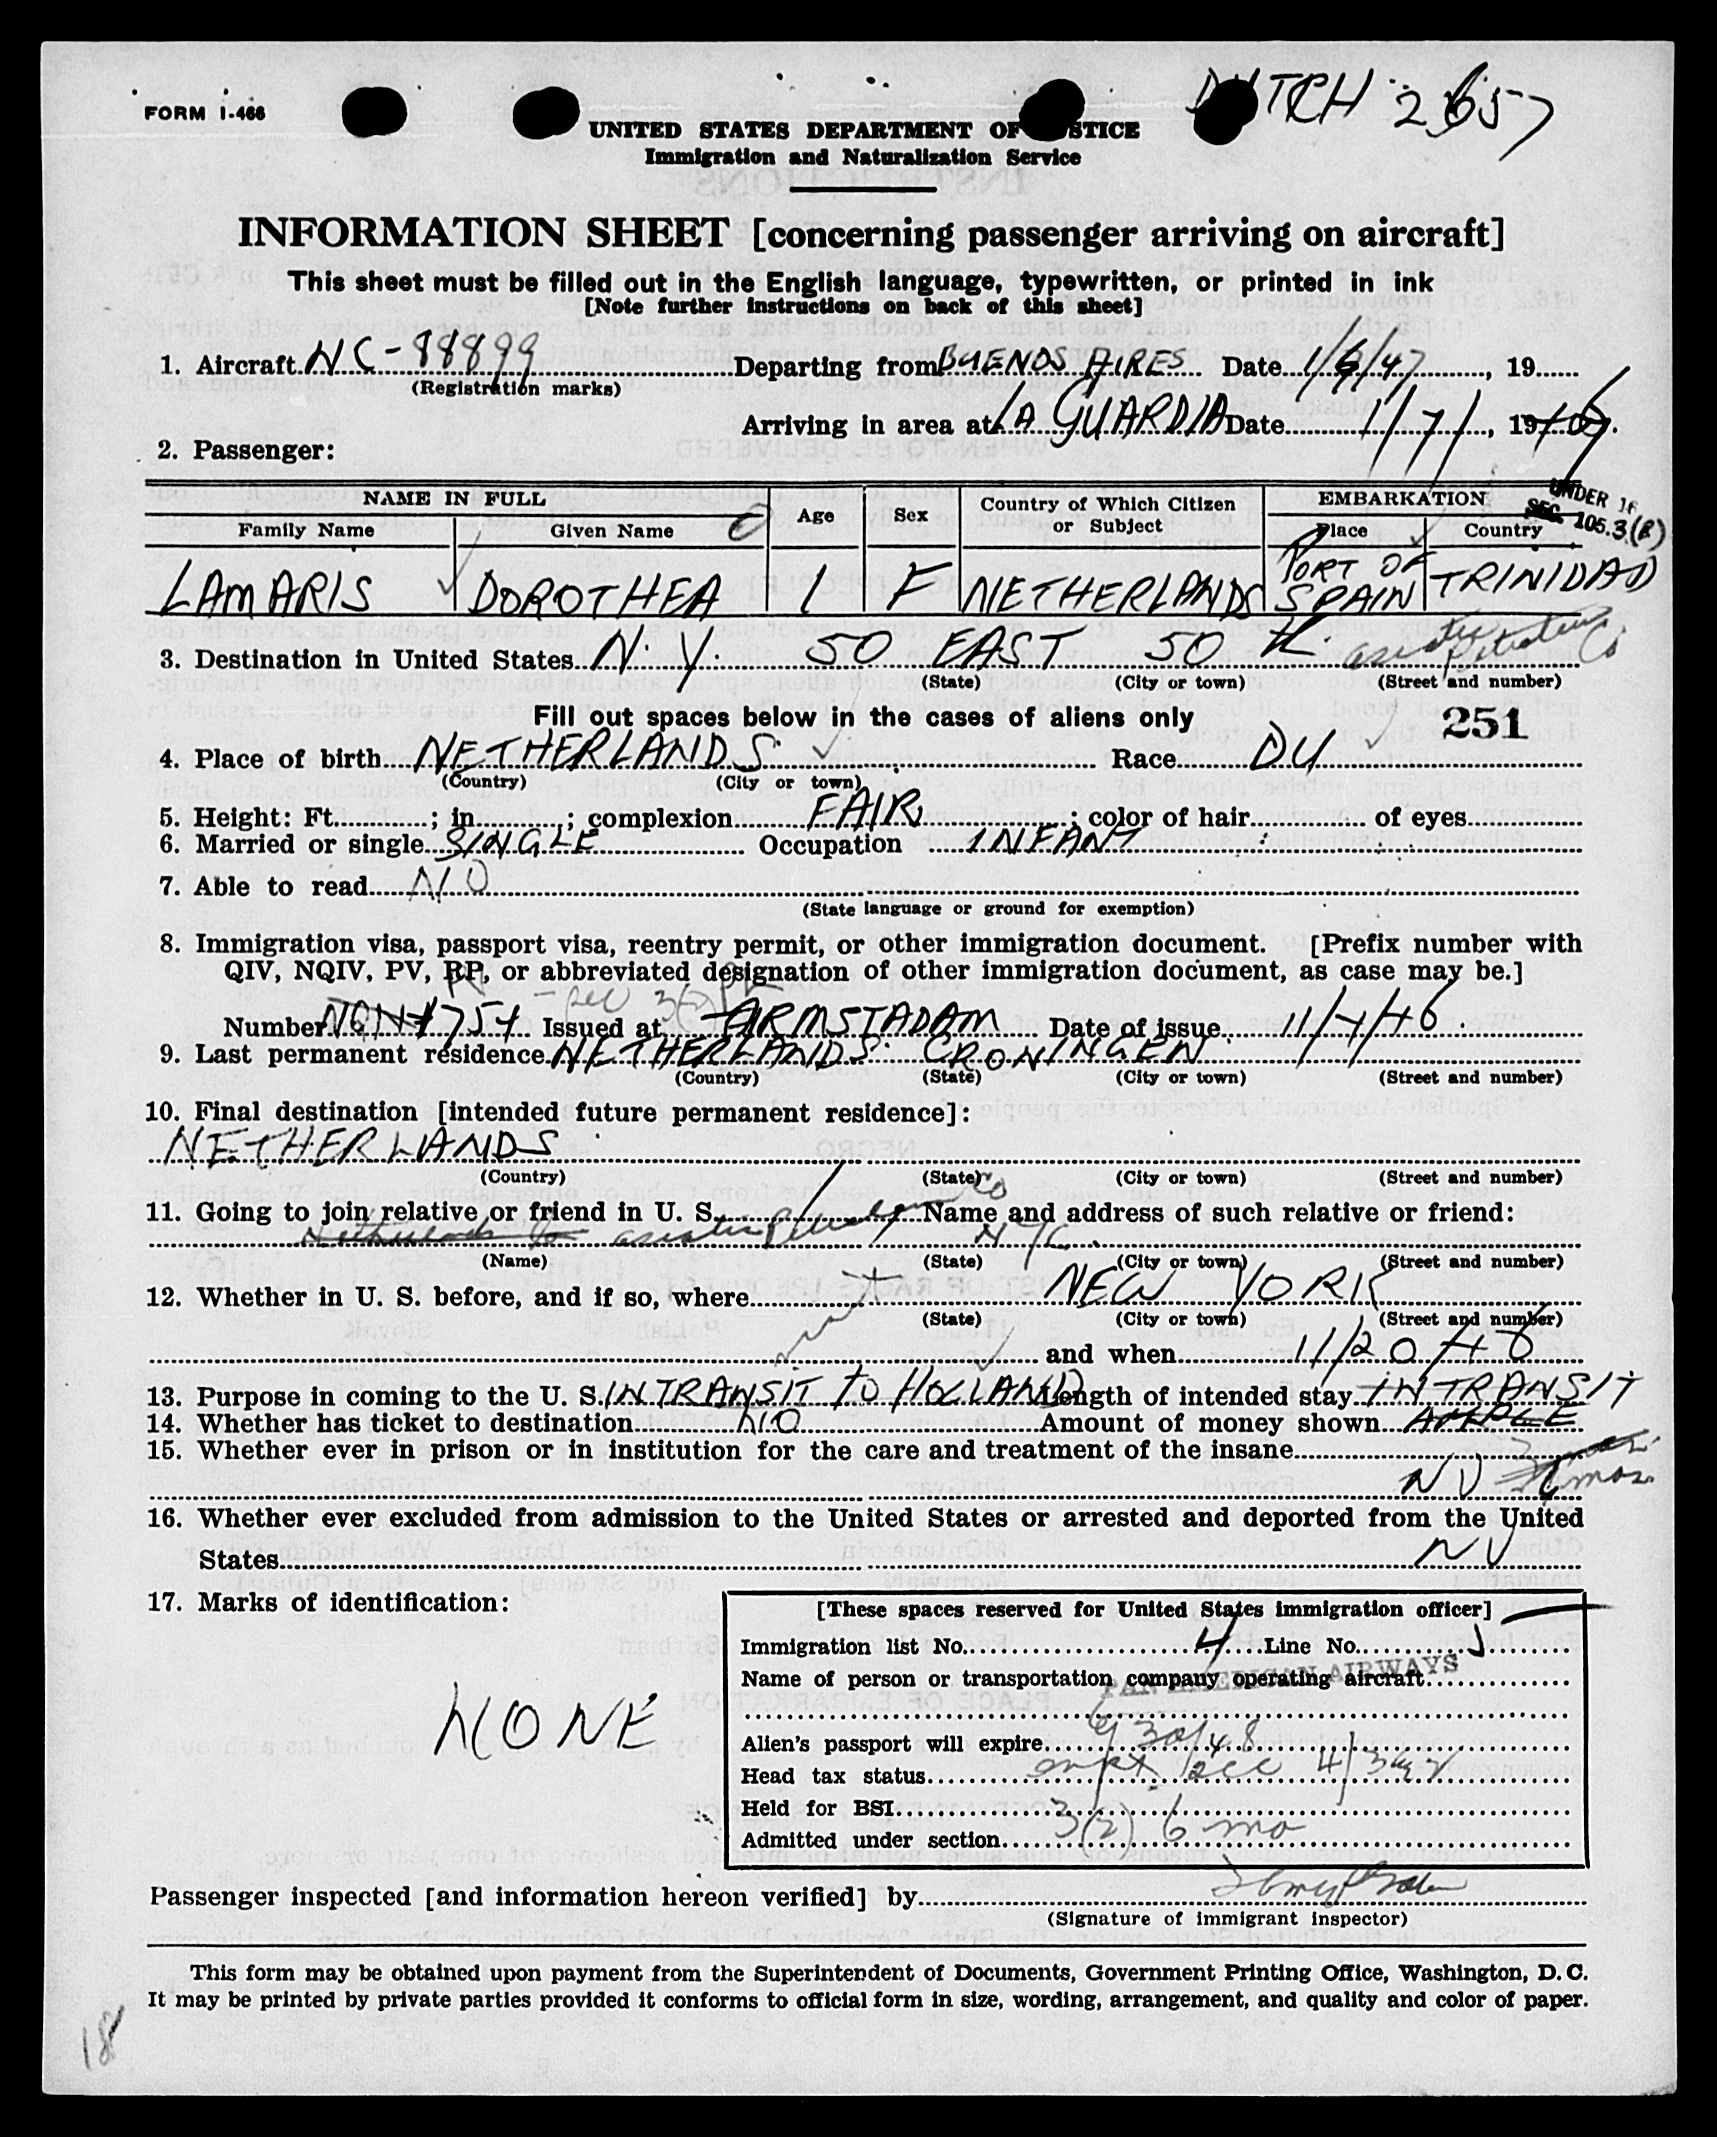 DUTCH 2657
FORM I-466
UNITED STATES DEPARTMENT OF JUSTICE
Immigration and Naturalization Service
INFORMATION SHEET [concerning passenger arriving on aircraft]
This sheet must be filled out in the English language, typewritten, or printed in ink
[Note further instructions on back of this sheet]
1. Aircraft NC-88899 Departing from BUENOS AIRES Date 1/6/47, 19
(Registration marks)
Arriving in area at LA GUARDIA Date 1/7/, 19
2. Passenger:
NAME IN FULL Age Sex Country of Which Citizen or Subject EMBARKATION
Family Name Given Name Place Country
UNDER 16
SEC. 105.3(B)
LAMARIS DOROTHEA 1 F NETHERLANDS PORT OF SPAIN TRINIDAD
3. Destination in United States N.Y. 50 EAST 50 th. asiatic Petroleum Co
(State) (City or town) (Street and number)
Fill out spaces below in the cases of aliens only 251
4. Place of birth NETHERLANDS Race DU
(Country) (City or town)
5. Height: Ft. ; in. ; complexion FAIR ; color of hair of eyes
6. Married or single SINGLE Occupation INFANT
7. Able to read NO
(State language or ground for exemption)
8. Immigration visa, passport visa, reentry permit, or other immigration document. [Prefix number with
QIV, NQIV, PV, RP, or abbreviated designation of other immigration document, as case may be.]
Number Issued at ARMSTADAM Date of issue 11/4/46
9. Last permanent residence NETHERLANDS CRONINGEN
(Country) (State) (City or town) (Street and number)
10. Final destination [intended future permanent residence]:
NETHERLANDS
(Country) (State) (City or town) (Street and number)
11. Going to join relative or friend in U. S. Name and address of such relative or friend:
asiatic Petroleum Co NYC
(Name) (State) (City or town) (Street and number)
12. Whether in U. S. before, and if so, where NEW YORK
(State) (City or town) (Street and number)
and when 11/20/46
13. Purpose in coming to the U. S. IN TRANSIT TO HOLLAND Length of intended stay IN TRANSIT
14. Whether has ticket to destination NO Amount of money shown
15. Whether ever in prison or in institution for the care and treatment of the insane
NO 6 mos.
16. Whether ever excluded from admission to the United States or arrested and deported from the United
States NO
17. Marks of identification:
NONE
[These spaces reserved for United States immigration officer]
Immigration list No. 4 Line No. 5
Name of person or transportation company operating aircraft
PAN AMERICAN AIRWAYS
Alien's passport will expire 9/30/48
Head tax status
Held for BSI
Admitted under section 3(2) 6 mo
Passenger inspected [and information hereon verified] by
(Signature of immigrant inspector)
This form may be obtained upon payment from the Superintendent of Documents, Government Printing Office, Washington, D. C.
It may be printed by private parties provided it conforms to official form in size, wording, arrangement, and quality and color of paper.
18